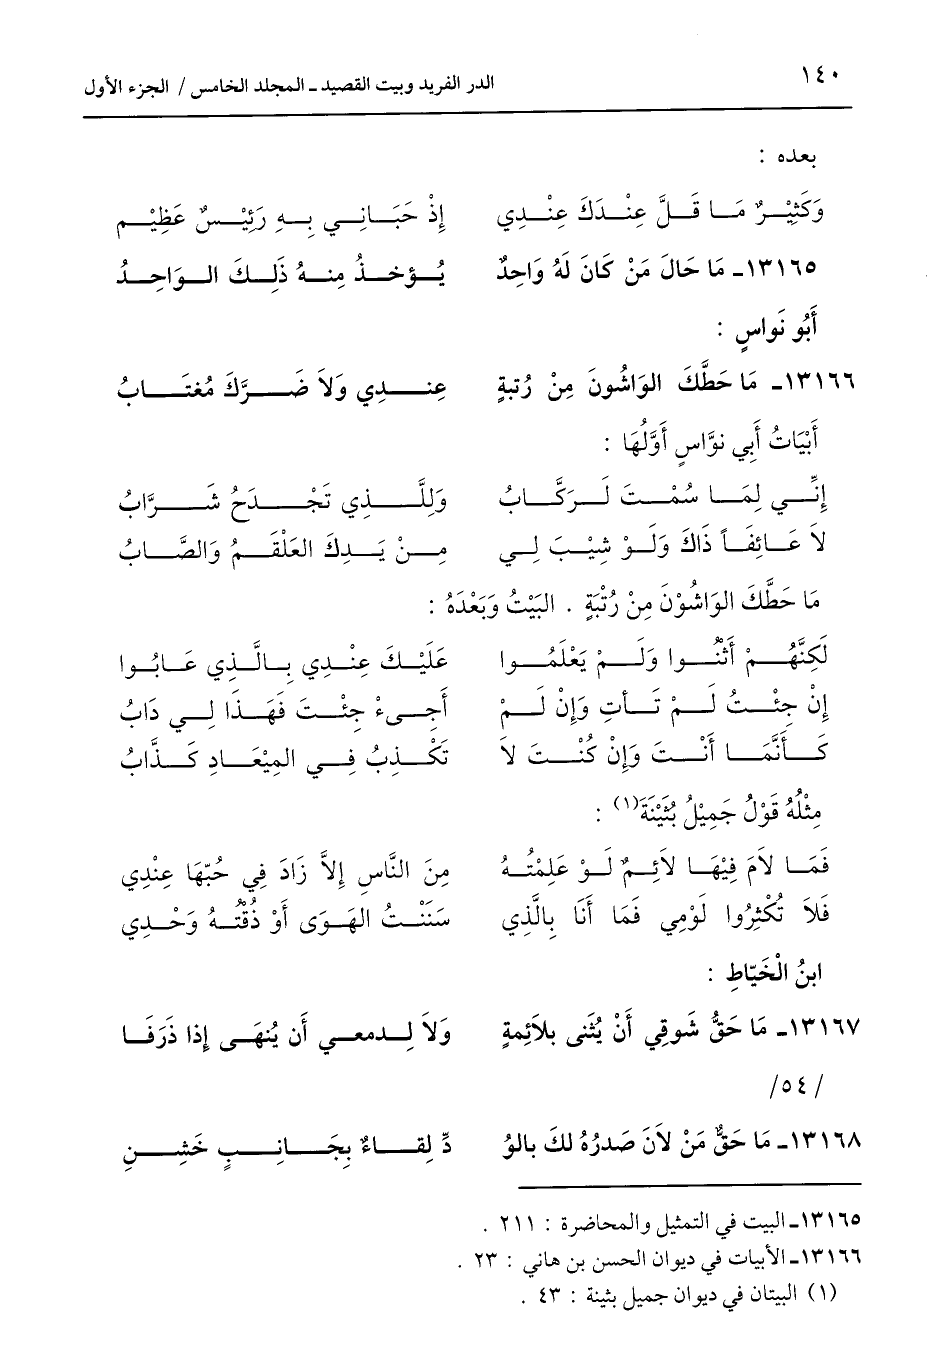 ١٤٠ الدر الفريد وبيت القصيد ـ المجلد الخامس / الجزء الأول
بعده :
وَكَثِيْرٌ مَا قَلَّ عِنْدَكَ عِنْدِي إِذْ حَبَانِي بِهِ رَئِيْسٌ عَظِيْم
١٣١٦٥ـ مَا حَالَ مَنْ كَانَ لَهُ وَاحِدٌ يُؤخذُ مِنهُ ذَلِكَ الوَاحِدُ
أَبُو نَواسٍ :
١٣١٦٦ـ مَا حَطَّكَ الوَاشُونَ مِنْ رُتبةٍ عِندِي وَلاَ ضَرَّكَ مُغتَابُ
أَبْيَاتُ أَبِي نوَّاسٍ أَوَّلُهَا :
إِنِّي لِمَا سُمْتَ لَرَكَّابُ وَلِلَّذِي تَجْدَحُ شَرَّابُ
لاَ عَائِفَاً ذَاكَ وَلَوْ شِيْبَ لِي مِنْ يَدِكَ العَلْقَمُ وَالصَّابُ
مَا حَطَّكَ الوَاشُوْنَ مِنْ رُتْبَةٍ . البَيْتُ وَبَعْدَهُ :
لَكِنَّهُمْ أَثْنُوا وَلَمْ يَعْلَمُوا عَلَيْكَ عِنْدِي بِالَّذِي عَابُوا
إِنْ جِئْتُ لَمْ تَأتِ وَإِنْ لَمْ أَجِىءْ جِئْتَ فَهَذَا لِي دَابُ
كَأَنَّمَا أَنْتَ وَإِنْ كُنْتَ لاَ تَكْذِبُ فِي المِيْعَادِ كَذَّابُ
مِثْلُهُ قَوْلُ جَمِيْلُ بُثَيْنَةَ(١) :
فَمَا لاَمَ فِيْهَا لاَئِمٌ لَوْ عَلِمْتُهُ مِنَ النَّاسِ إِلاَّ زَادَ فِي حُبِّهَا عِنْدِي
فَلاَ تُكْثِرُوا لَوْمِي فَمَا أَنَا بِالَّذِي سَنَنْتُ الهَوَى أَوْ ذُقْتُهُ وَحْدِي
ابنُ الْخَيّاطِ :
١٣١٦٧ـ مَا حَقُّ شَوقِي أَنْ يُثنى بلاَئِمةٍ وَلاَ لِدمعي أَن يُنهَى إِذا ذَرَفَا
/٥٤/
١٣١٦٨ـ مَا حَقٌّ مَنْ لاَنَ صَدرُهُ لكَ بالوُ دِّ لِقاءٌ بِجَانِبٍ خَشِنِ
١٣١٦٥ـ البيت في التمثيل والمحاضرة : ٢١١ .
١٣١٦٦ـ الأبيات في ديوان الحسن بن هاني : ٢٣ .
(١) البيتان في ديوان جميل بثينة : ٤٣ .